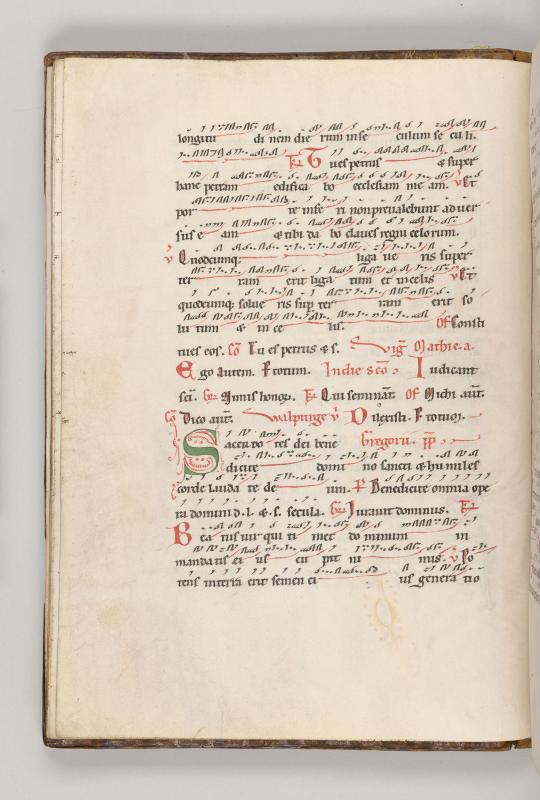 longitu di nem die rum in se culum se cu li.
Tr Tu es petrus & super
hanc petram edifica bo ecclesiam me am. V Et
por te infe ri non preualebunt aduer
sus e am. & tibi da bo claues regni celorum.
V Quodcumq; liga ue ris super
ter ram erit liga tum et in celis V Et
quodcumq; solue ris sup ter ram erit so
lu tum & in ce lis. Of Consti
tues eos. Co Tu es petrus & s. Vig Mathie. a.
Ego autem. P totum. In die sco Iudicant
sci. Gr Nimis honor. Tr Qui seminant. Of Michi aut.
Co Dico aut. Walpurge v Dilexisti. P totum.
Sacerdo tes dei bene Gregorii pp
dicite domi no sancti & humiles
corde lauda te de um. P Benedicite omnia ope
ra domini d. l. & s. secula. Gr Iurauit dominus. Tr
Bea tus uir qui ti met do minum in
mandatis ei us cu pit ni mis. V Po
tens in terra erit semen ei us genera tio